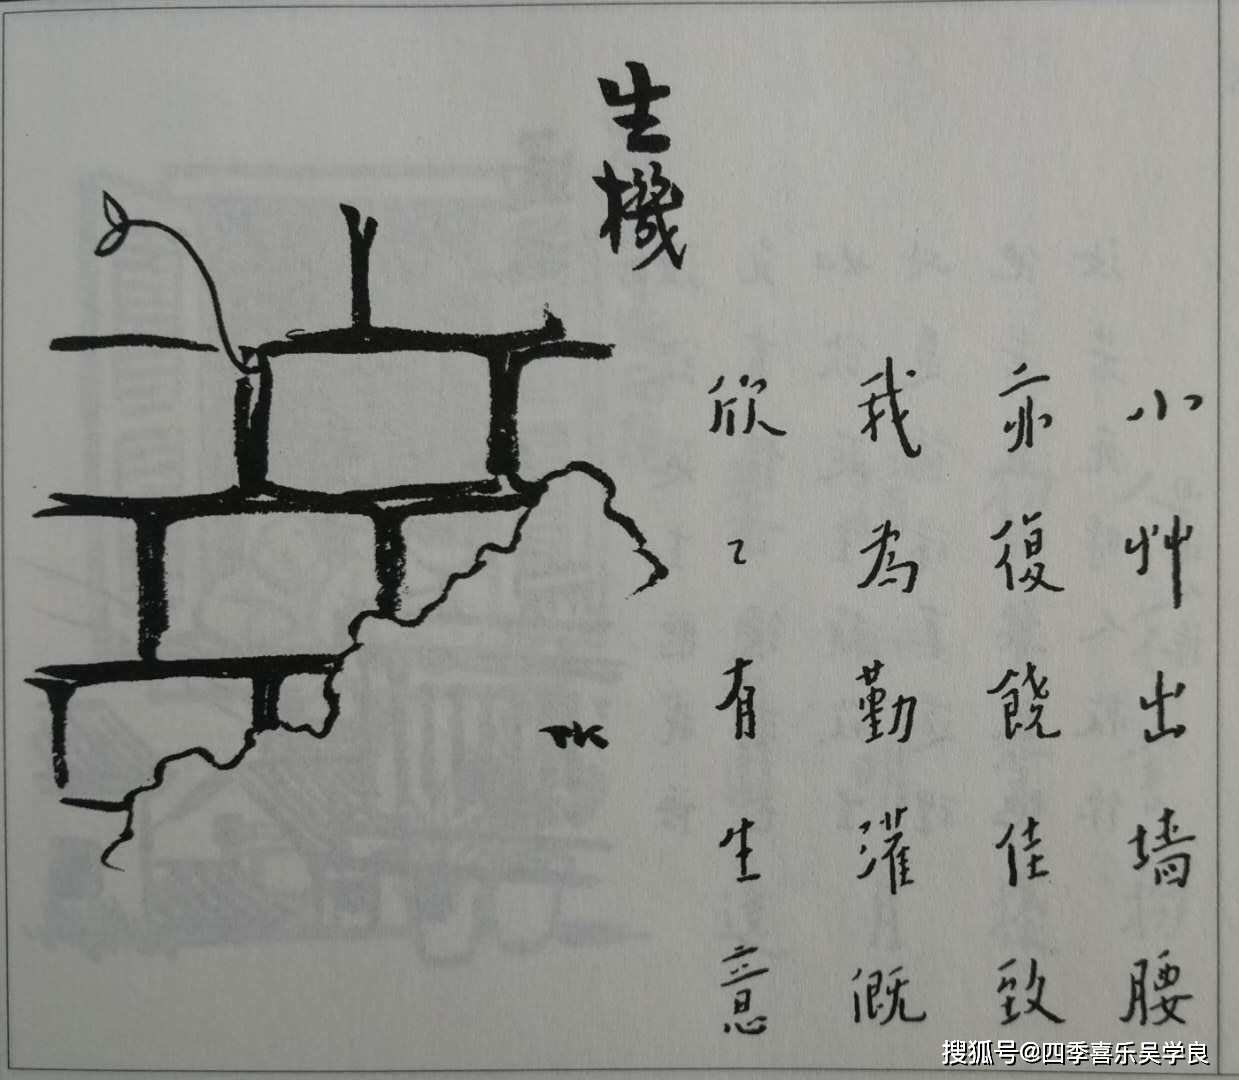 生機
小艸出墙腰
亦復饒佳致
我為勤灌溉
欣〻有生意
TK
搜狐号@四季喜乐吴学良